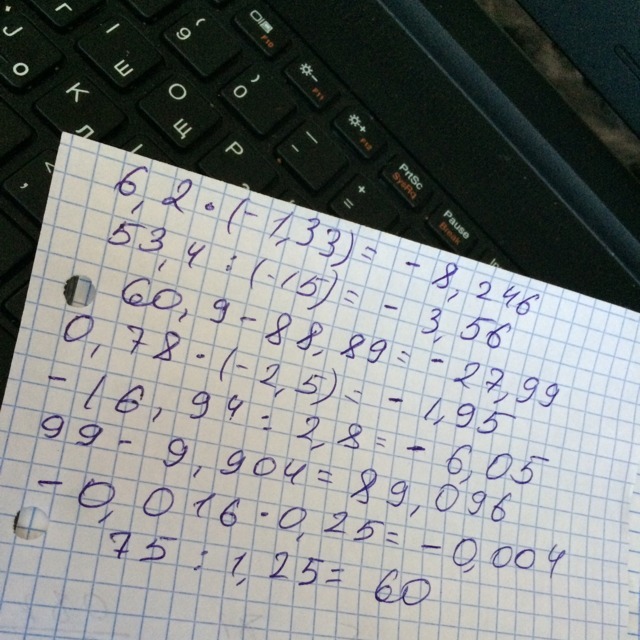 J o
I Ш
9
F10
F11
F12
К Л
О Щ
Р
+ =
PrtSc SysRq
Pause Break
6,2 · (-1,33) = - 8,246
53,4 : (-15) = - 3,56
60,9 - 88,89 = - 27,99
0,78 · (-2,5) = - 1,95
-16,94 : 2,8 = - 6,05
99 - 9,904 = 89,096
-0,016 · 0,25 = -0,004
75 : 1,25 = 60